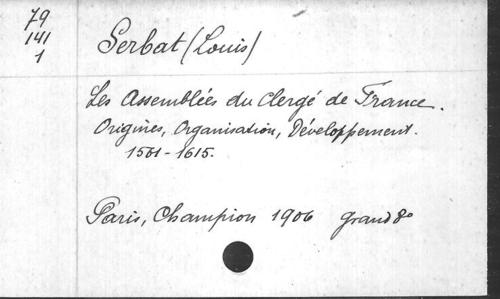 79
141
1
Serbat (Louis)
Les Assemblées du Clergé de France.
Origines, Organisation, Développement.
1561-1615.
Paris, Champion 1906 grand 8º